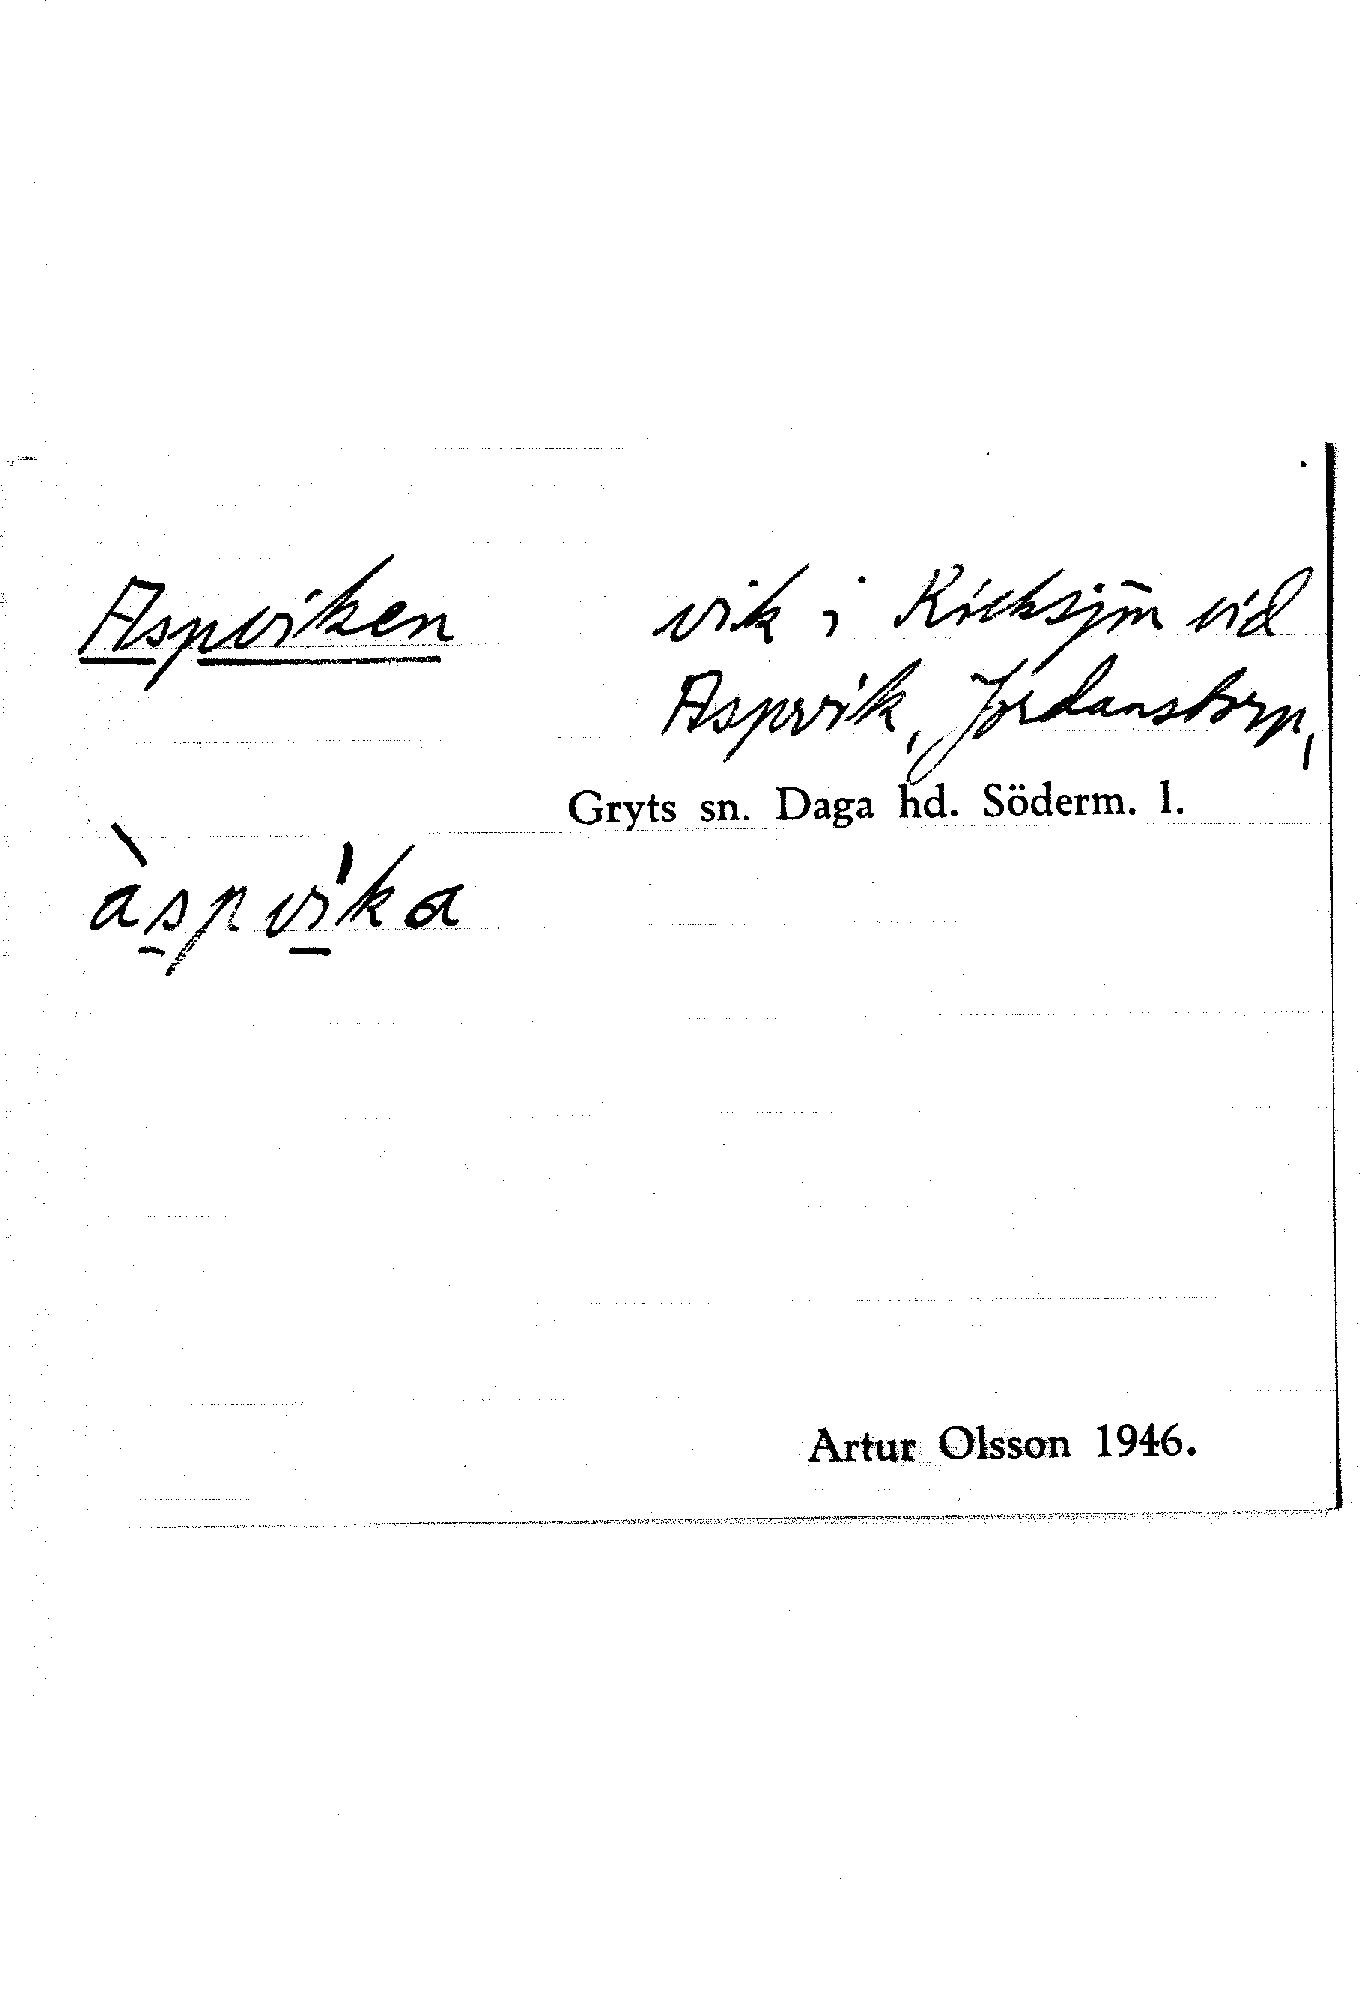 Aspviken vik i Kicksjön vid
Aspvik, Jordanstorp,
Gryts sn. Daga hd. Söderm. l.
àspvíka
Artur Olsson 1946.